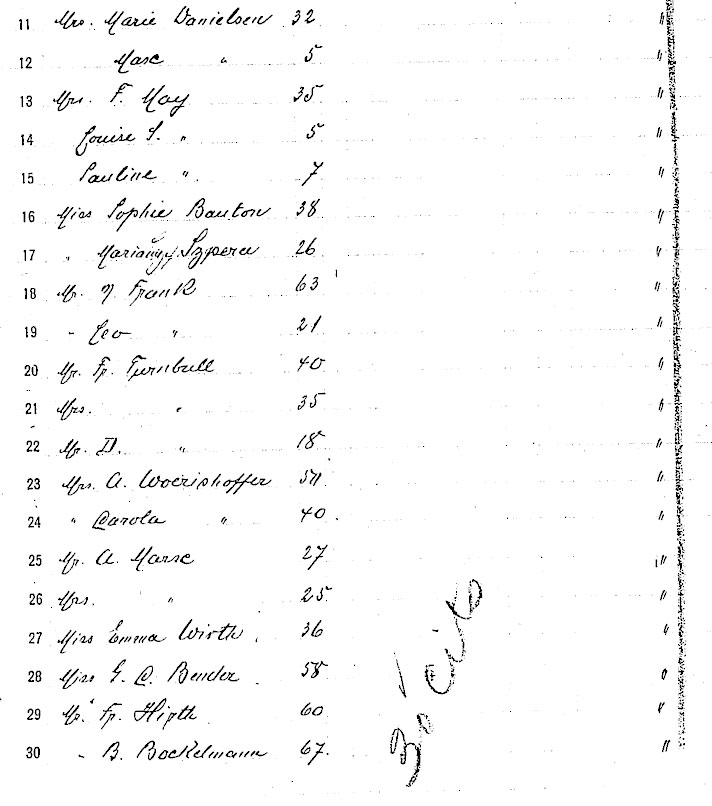 11 Mrs. Marie Danielsen 32 "
12 Marc " 5 "
13 Mrs. F. May 35 "
14 Louise S. " 5 "
15 Pauline " 7 "
16 Miss Sophie Bauton 38 "
17 " Szpera 26 "
18 Mr. N. Frank 63 "
19 " Leo " 21 "
20 Mr. Fr. Turnbull 40 "
21 Mrs. " 35 "
22 Mr. D. " 18 "
23 Mrs. A. Woerishoffer "
24 " Carola " 40. "
25 Mr. A. Marse 27 "
26 Mrs. " 25 "
27 Miss Emma Wirth. 36 "
28 Miss G. C. Bender 58 "
29 Mr. Fr. Hirth 60 "
30 " B. Bockelmann 67. "
30 Cits